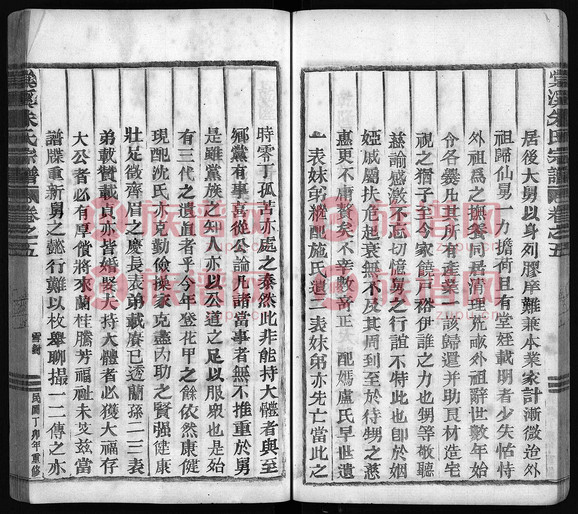 棠溪朱氏宗譜
卷之五
居後大舅以身列膠庠難兼本業家計漸微迨外
祖歸仙舅一力擔荷且有堂姪載明者少失怙恃
外祖爲之撫養同居清理荒疏外祖辭世數年始
令各爨凡其所有產業一該歸還并助貲材造宅
視之猶子至今家饒戸裕伊誰之力也甥等敬聽
慈諭感激不忘切憶舅之行誼不特此也卽於姻
婭戚屬扶危濟艱無不及其周到至於待甥之慈
惠更不庸贅矣不幸數蒋正
配媽盧氏早世遺
一表妹邵繼配施氏遺二表妹弟亦先亡當此之
時零丁孤苦亦處之泰然此非能持大體者與至
鄉黨有事萬從公論凡諸當事者無不推重於舅
是雖黨族之知人亦以公道之足以服眾也是殆
有三代之遺直者乎今年登花甲之餘依然康健
現配沈氏亦克勤儉操家克盡內助之賢强健康
壯足徵齊眉之慶長表弟載賡已透蘭孫二三表
弟載贊載貞亦皆婚娶大持大體者必獲大福存
大公者必有厚償將來蘭桂騰芳福祉未艾茲當
譜牒重新舅之懿行難以枚舉聊撮一二傳之亦
棠溪朱氏宗譜
卷之五
民國丁卯年重修